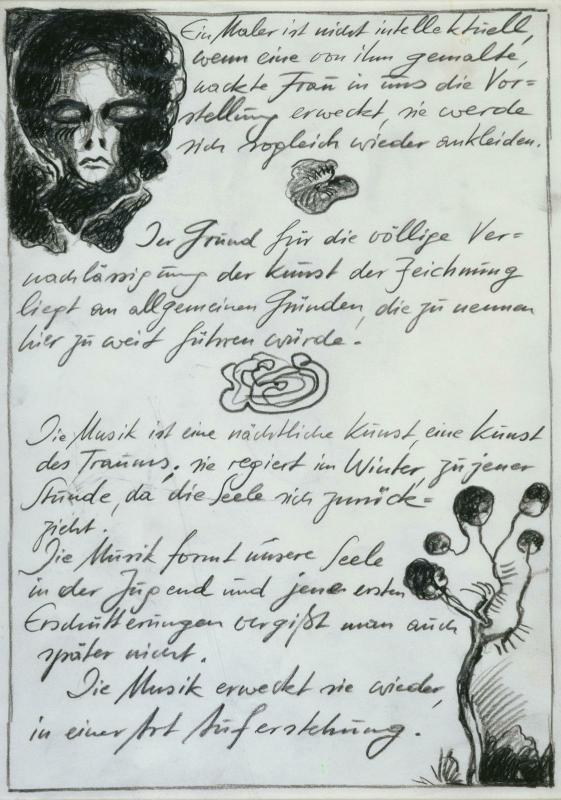 Ein Maler ist nicht intellektuell,
wenn eine von ihm gemalte,
nackte Frau in uns die Vor=
stellung erweckt, sie werde
sich sogleich wieder ankleiden.
Der Grund für die völlige Ver=
nachlässigung der Kunst der Zeichnung
liegt an allgemeinen Gründen, die zu nennen
hier zu weit führen würde.
Die Musik ist eine nächtliche Kunst, eine Kunst
des Traums; sie regiert im Winter, zu jener
Stunde, da die Seele sich zurück=
zieht.
Die Musik formt unsere Seele
in der Jugend und jene ersten
Erschütterungen vergißt man auch
später nicht.
Die Musik erweckt sie wieder,
in einer Art Auferstehung.